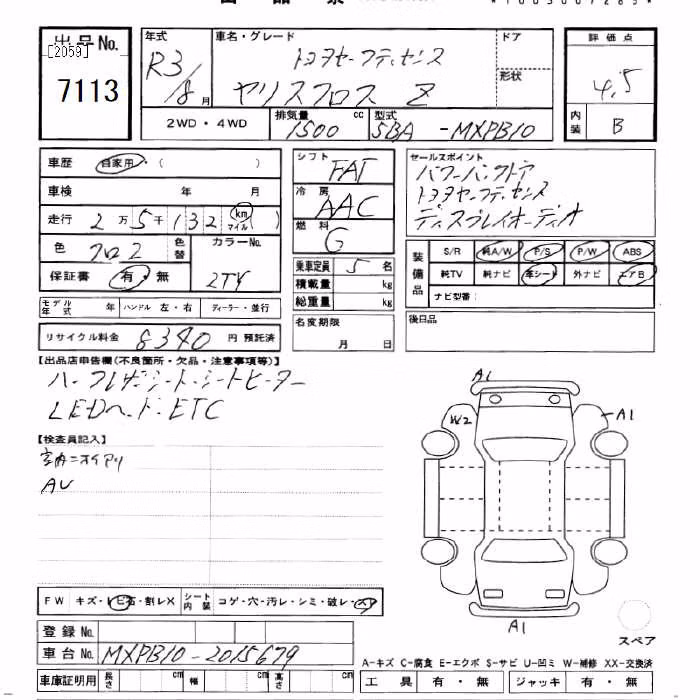 出品No.
[2059]
7113
年式
R3/8月
車名・グレード
トヨタセーフティセンス
ヤリスクロス Z
ドア
形状
評価点
4.5
内装
B
2WD・4WD
排気量 1500 cc
型式 5BA-MXPB10
車歴 自家用・( )
車検 年 月
走行 2万5千132 km マイル ( )
色 クロ2
色替
カラーNo.
2TY
保証書 有・無
モデル年式 年
ハンドル 左・右
ディーラー・並行
リサイクル料金 8340 円 預託済
シフト FAT
冷房 AAC
燃料 G
乗車定員 5 名
積載量 kg
総重量 kg
名変期限
月 日
セールスポイント
パワーバックドア
トヨタセーフティセンス
ディスプレイオーディオ
装備品
S/R 純A/W P/S P/W ABS
純TV 純ナビ 革シート 外ナビ エアB
ナビ型番:
後日品
【出品店申告欄(不良箇所・欠品・注意事項等)】
ハーフレザーシート・シートヒーター
LEDヘッド・ETC
【検査員記入】
室内ニオイアリ
AV
FW キズ・トビ石・割レX
シート内装 コゲ・穴・汚レ・シミ・破レ・スレ
登録No.
車台No. MXPB10-2015679
車庫証明用 長さ cm 幅 cm 高さ cm
A1
W2
A1
A1
スペア
A-キズ C-腐食 E-エクボ S-サビ U-凹ミ W-補修 XX-交換済
工具 有・無 ジャッキ 有・無